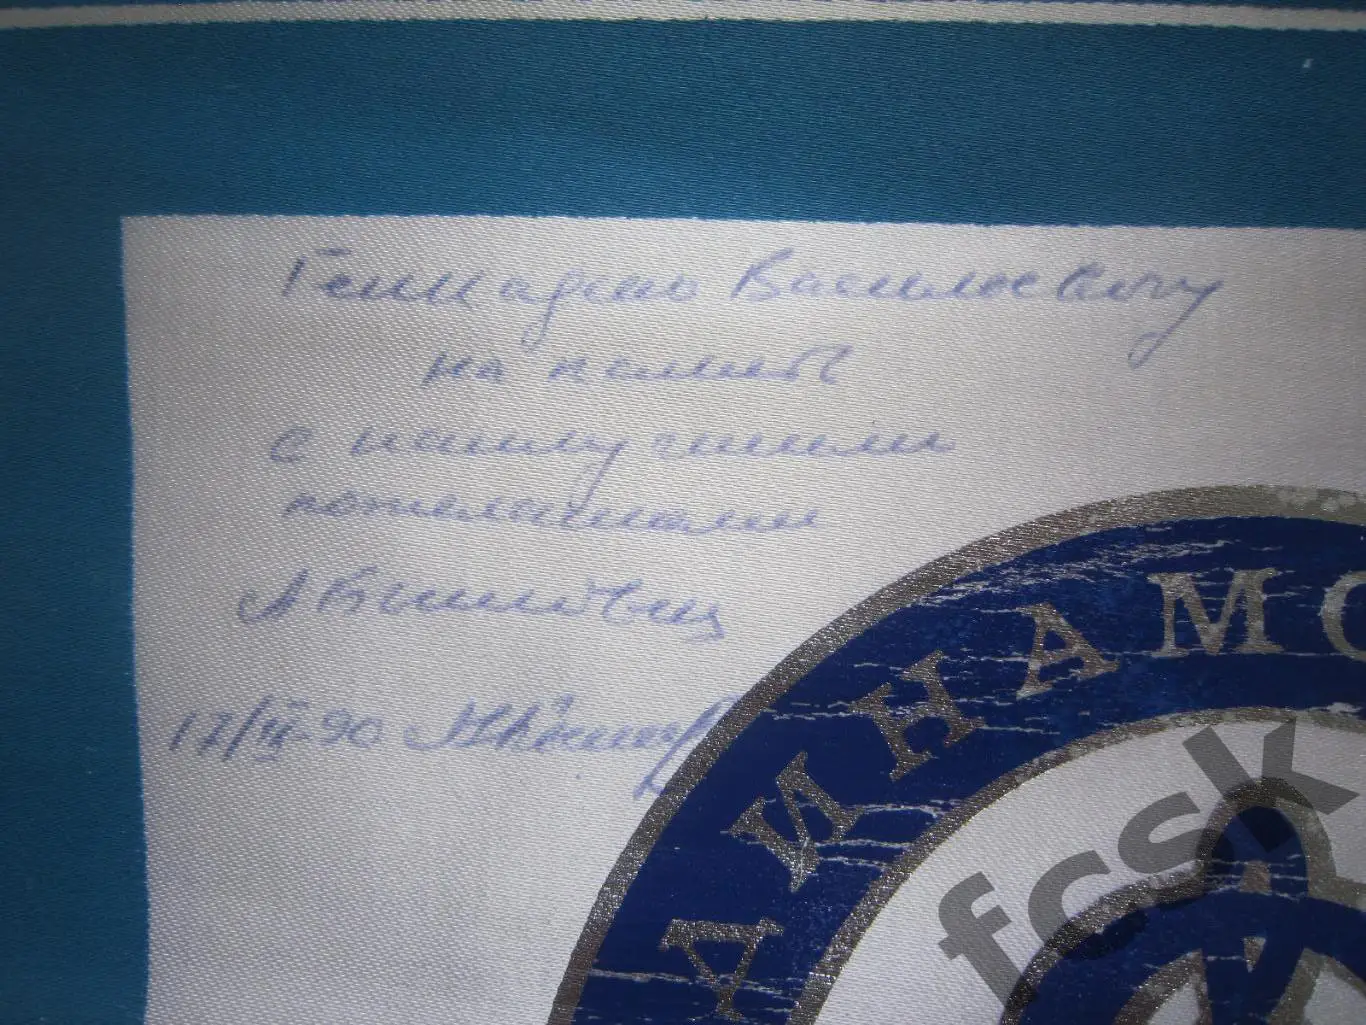 Геннадию Васильевичу
на память
с наилучшими
пожеланиями
17/IV 90
ДИНАМО
fcsk